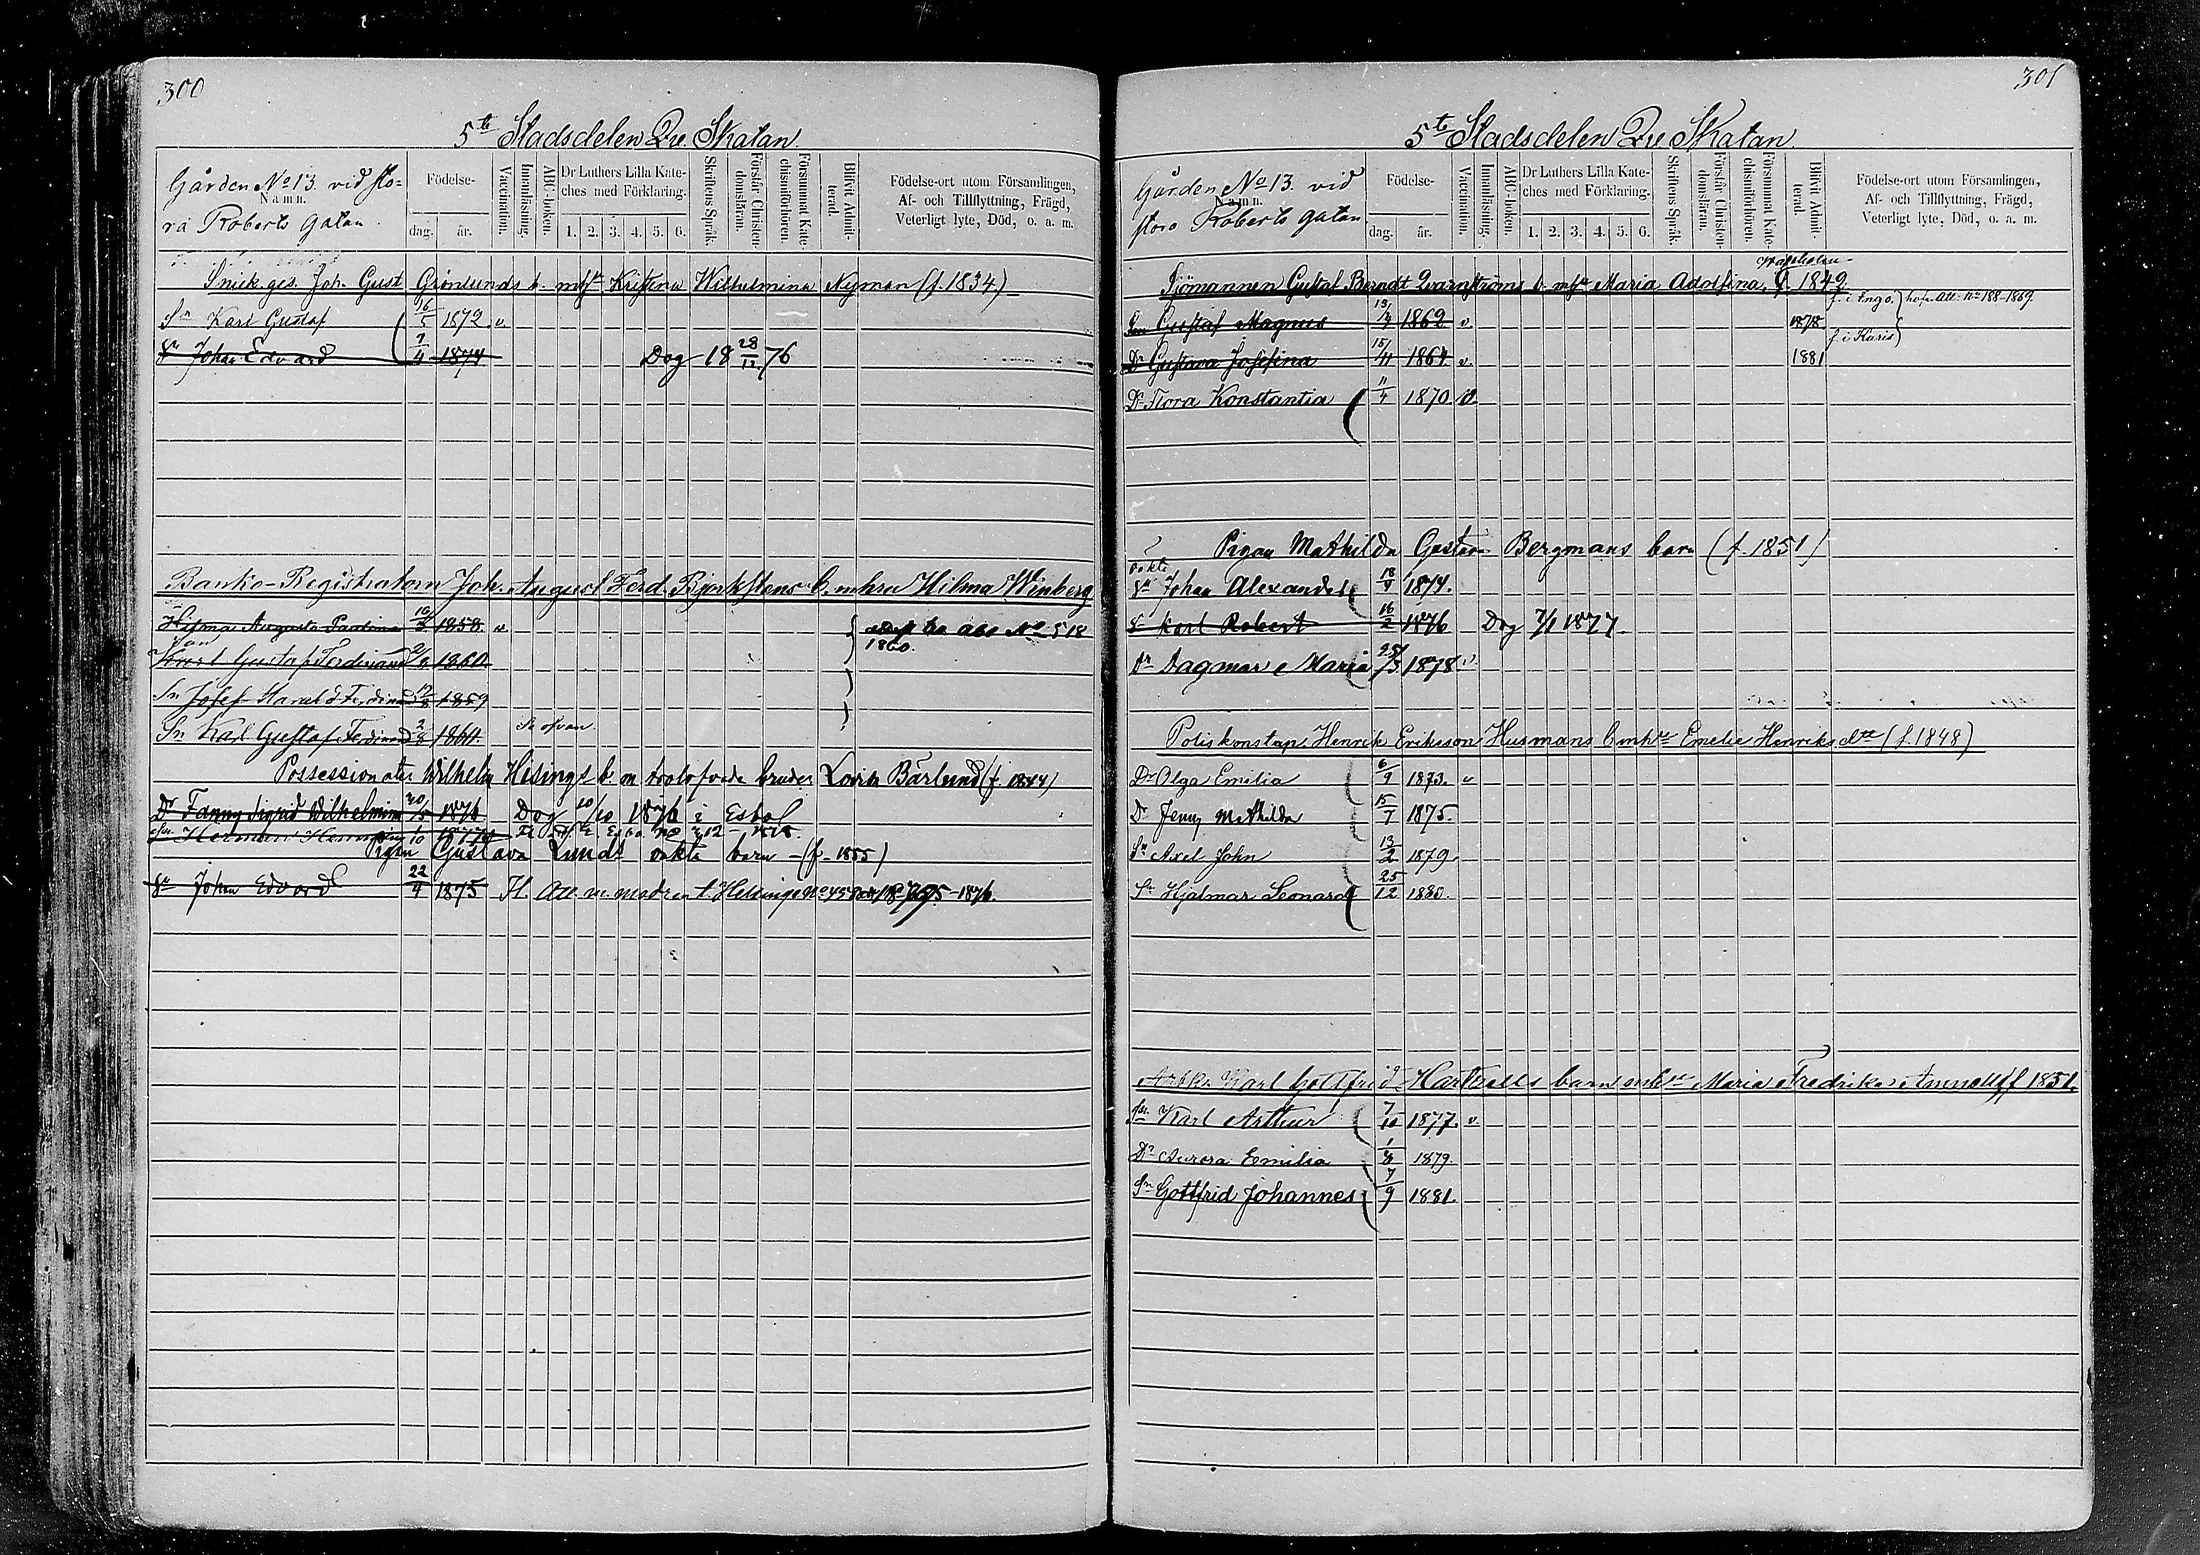 300
5te Stadsdelen Qv. Skatan.
Gården No 13. vid sto-
Namn.
ra Roberts gatan.
Födelse-
dag. år.
Vaccination.
Innanläsning.
ABC-boken.
Dr Luthers Lilla Kate-
ches med Förklaring.
1. 2. 3. 4. 5. 6.
Skriftens Språk.
Förstår Christen-
domsläran.
Försummat Kate-
chismiförhören.
Blifvit Admit-
terad.
Födelse-ort utom Församlingen,
Af- och Tillflyttning, Frägd,
Veterligt lyte, Död, o. a. m.
Snick. ges. Joh. Gust Grönlunds b. m hst Kristina Wilhelmina Nyman (f. 1834)
Sn Karl Gustaf 16/5 1872. v.
Sn Johan Edvard 7/4 1874 Dog 18 28/12 76
Banko-Registratorn Joh. August Ferd. Björkstens b. m hru Hilma Winberg
Hilma Augusta Paulina 16/3 1858. v. No 518
1860.
Karl Gustaf Ferdinand 2/8 1860
Sn Josef Harald Ferdinand 1859
Sn Karl Gustaf Ferdinand 2/8 1860. Se ofvan.
Possessionater Wilhelm Hisings b. m Lovisa Bärlund (f. 1844)
Dr Fanny Sigrid Wilhelmina 20/5 1876 Dog 10/10 1876 i Esbo
Sn Herman 1877
Pigan Gustava Lunds oäkta barn - (f. 1855)
Sn Johan Edvard 22/9 1875 Fl. Att. m. modren t. Helsinge 1876.
301
5te Stadsdelen Qv. Skatan.
Gården No 13. vid
Namn.
stora Roberts gatan
Födelse-
dag. år.
Vaccination.
Innanläsning.
ABC-boken.
Dr Luthers Lilla Kate-
ches med Förklaring.
1. 2. 3. 4. 5. 6.
Skriftens Språk.
Förstår Christen-
domsläran.
Försummat Kate-
chismiförhören.
Blifvit Admit-
terad.
Födelse-ort utom Församlingen,
Af- och Tillflyttning, Frägd,
Veterligt lyte, Död, o. a. m.
Sjömannen Gustaf Berndt Qvarnströms b. m hst Maria Adolfina, f. 1842
Son Gustaf Magnus 13/4 1862 v 1878 f. i Ingo, Att. no 188-1869.
f. i Karis
Dr Gustava Josefina 15/11 1864. v. 1881
Dr Flora Konstantia 11/4 1870. v.
Pigan Mathilda Gustava Bergmans barn (f. 1851)
oäkta
Sn Johan Alexander 18/4 1874.
S Karl Robert 16/2 1876 Dog 7/1 1877.
Dr Dagmar Maria 25/3 1878. v
Poliskonstap. Henrik Eriksson Husmans b m hst Emelie Henriksdtr (f. 1848)
Dr Olga Emilia 6/9 1873. v
Dr Jenny Mathilda 15/7 1875.
Sn Axel John 13/2 1879.
Sn Hjalmar Leonard 25/12 1880.
Arbk. Karl Gottfrid Hartvalls barn m hst Maria Fredrika f 1851.
Sn Karl Arthur 7/10 1877. v.
Dr Aurora Emilia 1/8 1879.
Sn Gottfrid Johannes 7/9 1881.